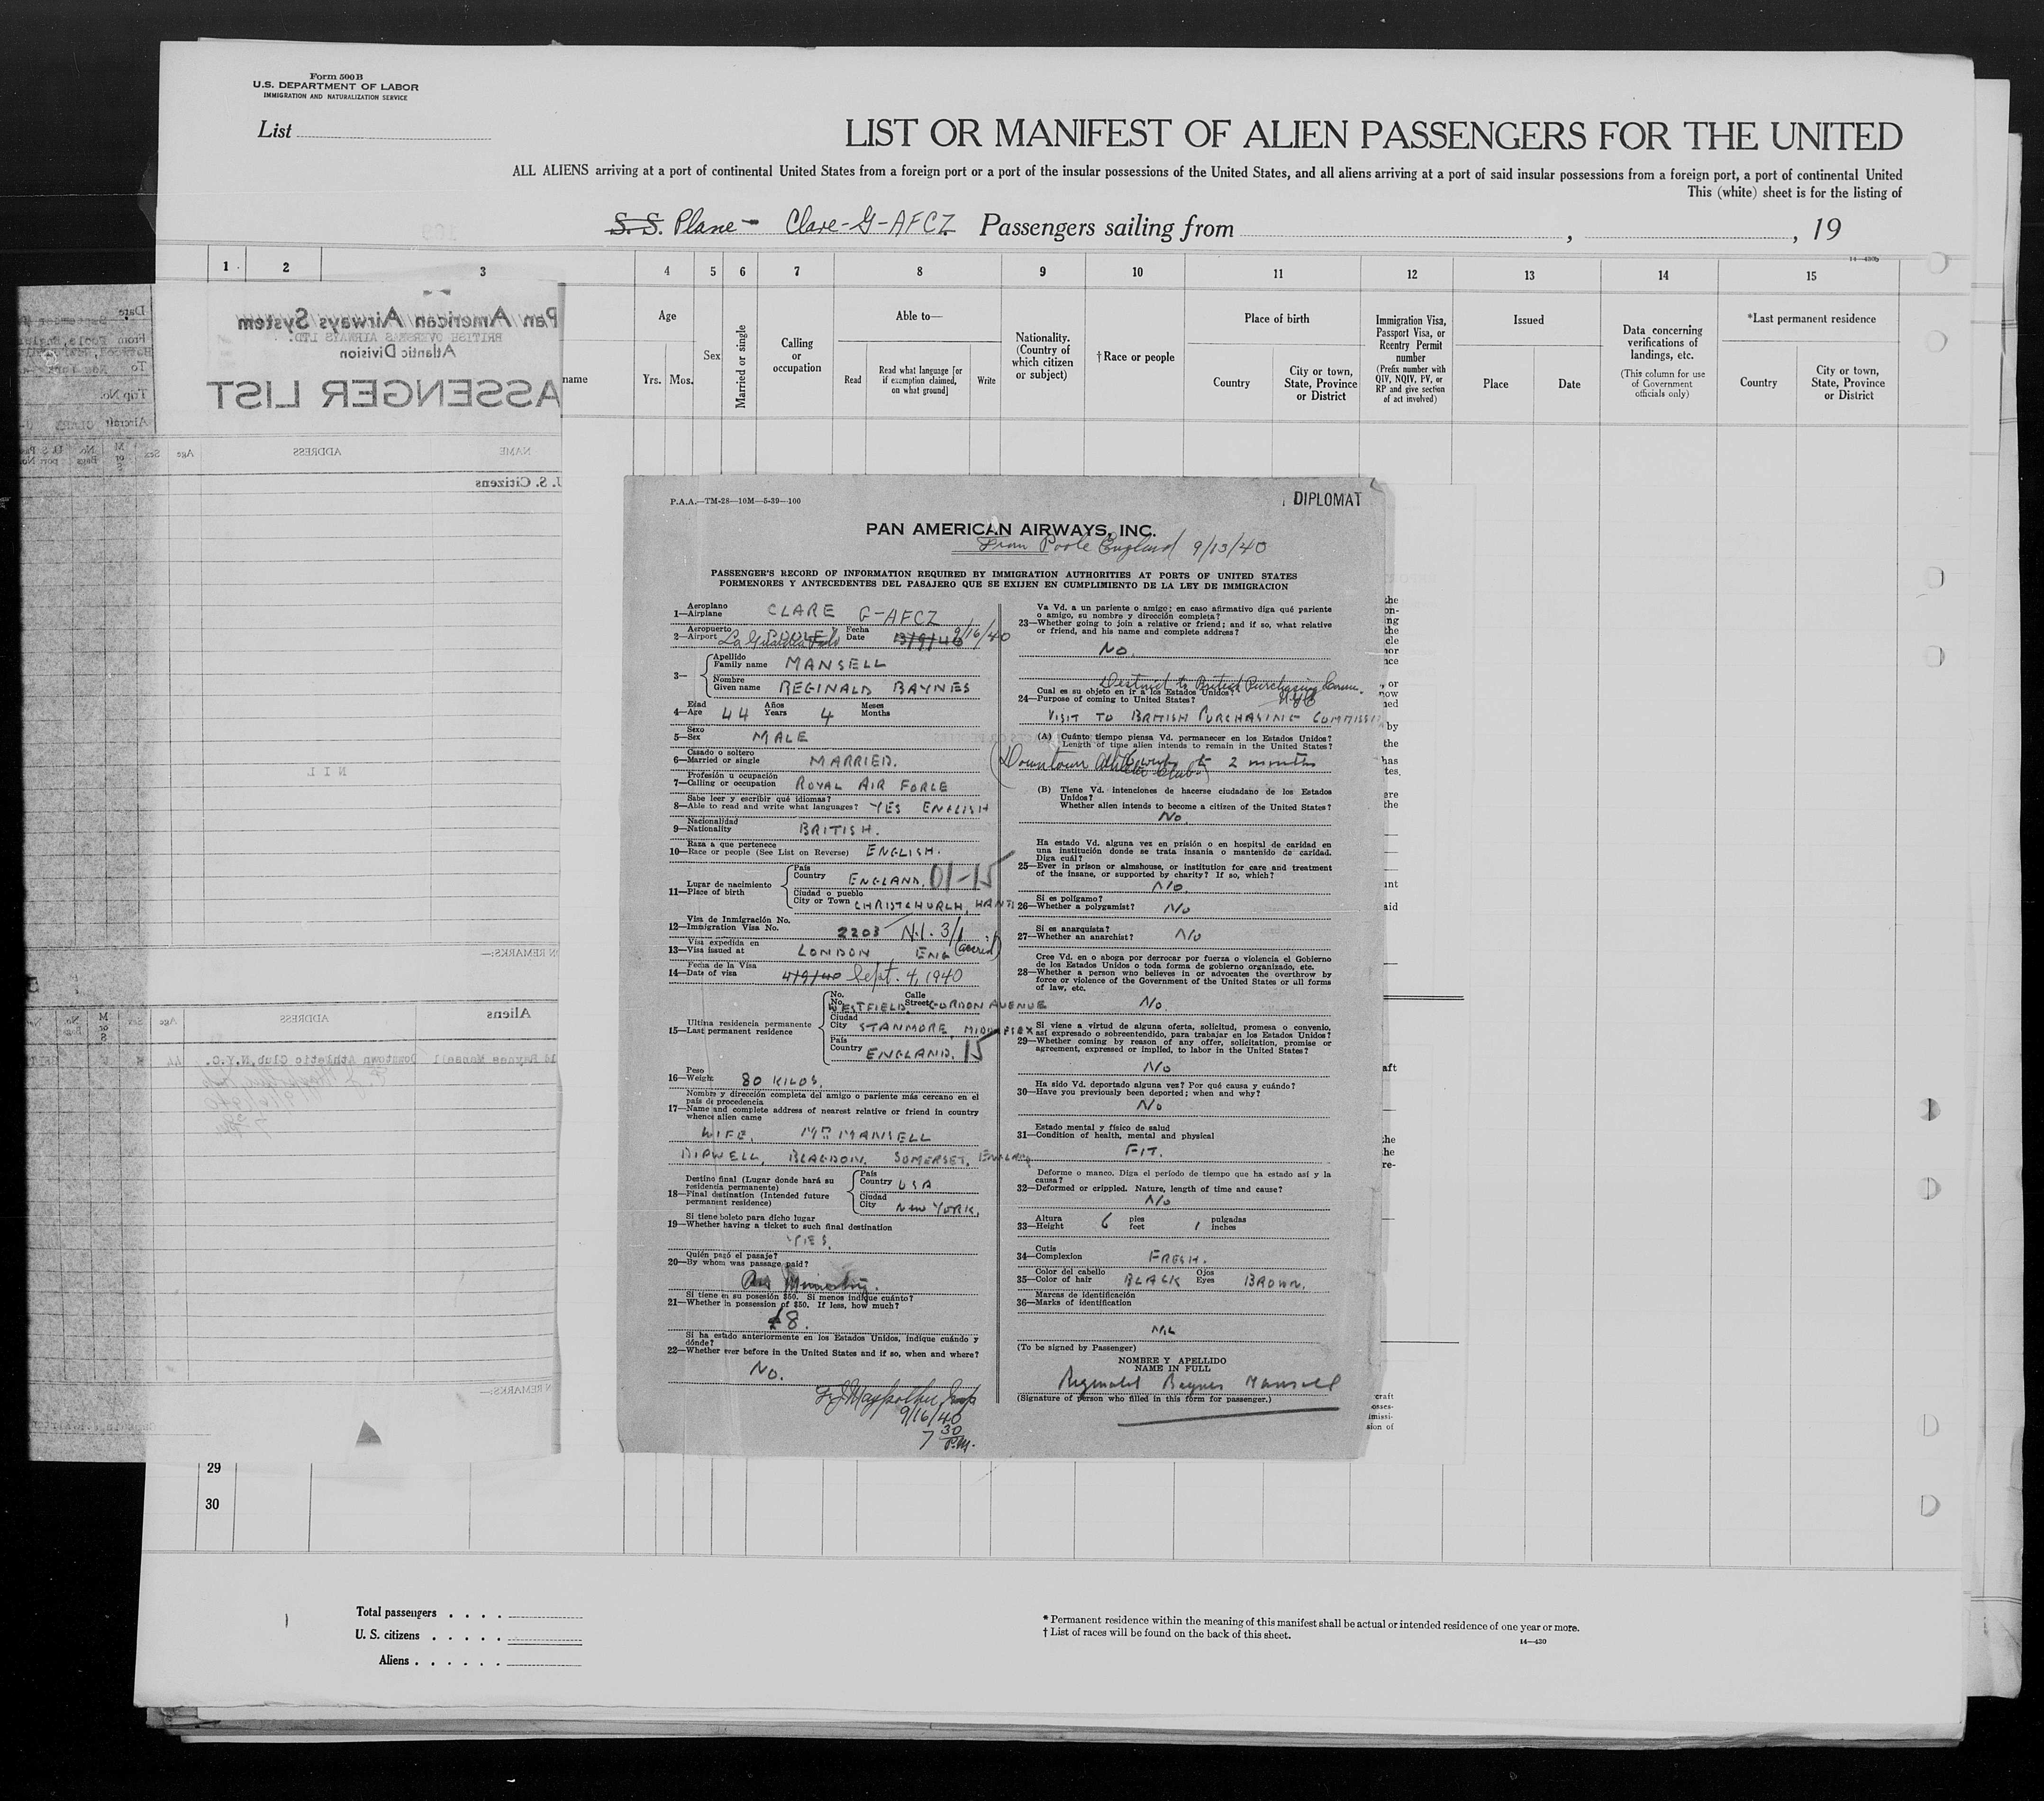 Form 500B
U.S. DEPARTMENT OF LABOR
IMMIGRATION AND NATURALIZATION SERVICE
List
LIST OR MANIFEST OF ALIEN PASSENGERS FOR THE UNITED
ALL ALIENS arriving at a port of continental United States from a foreign port or a port of the insular possessions of the United States, and all aliens arriving at a port of said insular possessions from a foreign port, a port of continental United
This (white) sheet is for the listing of
S. S. Plane - Clare-G-AFCZ Passengers sailing from , , 19
14-430b
1 2 3 4 5 6 7 8 9 10 11 12 13 14 15
name
Age
Yrs. Mos.
Sex
Married or single
Calling or occupation
Able to—
Read
Read what language [or if exemption claimed, on what ground]
Write
Nationality. (Country of which citizen or subject)
† Race or people
Place of birth
Country
City or town, State, Province or District
Immigration Visa, Passport Visa, or Reentry Permit number
(Prefix number with QIV, NQIV, PV, or RP and give section of act involved)
Issued
Place
Date
Data concerning verifications of landings, etc.
(This column for use of Government officials only)
*Last permanent residence
Country
City or town, State, Province or District
Pan American Airways System
BRITISH OVERSEAS AIRWAYS LTD.
Atlantic Division
ASSENGER LIST
Date
From Poole, Engla
To
Trip No.
Aircraft CLARE
NAME ADDRESS Age Sex M or S No. Bags
. S. Citizens
N I L
N REMARKS:—
Aliens ADDRESS Age Sex M or S No. Bags
ld Baynes Mansell Downtown Athletic Club, N.Y.C. 44
N REMARKS:—
P.A.A.—TM-28—10M—5-39—100
DIPLOMAT
PAN AMERICAN AIRWAYS, INC.
From Poole England 9/13/40
PASSENGER'S RECORD OF INFORMATION REQUIRED BY IMMIGRATION AUTHORITIES AT PORTS OF UNITED STATES
PORMENORES Y ANTECEDENTES DEL PASAJERO QUE SE EXIJEN EN CUMPLIMIENTO DE LA LEY DE IMMIGRACION
Aeroplano
1—Airplane CLARE G-AFCZ
Aeropuerto Fecha
2—Airport POOLE La Guardia Field Date 13/9/40 9/16/40
3— Apellido
Family name MANSELL
Nombre
Given name REGINALD BAYNES
Edad Años Meses
4—Age 44 Years 4 Months
Sexo
5—Sex MALE
Casado o soltero
6—Married or single MARRIED.
Profesión u ocupación
7—Calling or occupation ROYAL AIR FORCE
Sabe leer y escribir qué idiomas?
8—Able to read and write what languages? YES ENGLISH
Nacionalidad
9—Nationality BRITISH.
Raza a que pertenece
10—Race or people (See List on Reverse) ENGLISH.
Lugar de nacimiento
11—Place of birth
País
Country ENGLAND. 01-15
Ciudad o pueblo
City or Town CHRISTCHURCH, HANTS
Visa de Inmigración No.
12—Immigration Visa No. 2203 N.I. 3/1
Visa expedida en
13—Visa issued at LONDON ENG (accred)
Fecha de la Visa
14—Date of visa 4/9/40 Sept. 4, 1940
Ultina residencia permanente
15—Last permanent residence
No. Calle
No. Street WESTFIELD GORDON AVENUE
Ciudad
City STANMORE, MIDDLESEX
País
Country ENGLAND. 15
Peso
16—Weight 80 KILOS.
Nombre y dirección completa del amigo o pariente más cercano en el país de procedencia
17—Name and complete address of nearest relative or friend in country whence alien came
WIFE. MRS MANSELL
BLAGDON. SOMERSET. ENGLAND
Destino final (Lugar donde hará su residencia permanente)
18—Final destination (Intended future permanent residence)
País
Country USA
Ciudad
City NEW YORK.
Si tiene boleto para dicho lugar
19—Whether having a ticket to such final destination
YES.
Quién pagó el pasaje?
20—By whom was passage paid?
Air Ministry.
Si tiene en su posesión $50. Si menos indique cuánto?
21—Whether in possession of $50. If less, how much?
£8.
Si ha estado anteriormente en los Estados Unidos, indique cuándo y dónde?
22—Whether ever before in the United States and if so, when and where?
No.
9/16/40
7 30 P.M.
Va Vd. a un pariente o amigo; en caso afirmativo diga qué pariente o amigo, su nombre y dirección completa?
23—Whether going to join a relative or friend; and if so, what relative or friend, and his name and complete address?
No.
Destined to British Purchasing Comm.
NYC
Cual es su objeto en ir a los Estados Unidos?
24—Purpose of coming to United States?
VISIT TO BRITISH PURCHASING COMMISSI
(A) Cuánto tiempo piensa Vd. permanecer en los Estados Unidos?
Length of time alien intends to remain in the United States?
(Downtown Athletic Club) 2 months
(B) Tiene Vd. intenciones de hacerse ciudadano de los Estados Unidos?
Whether alien intends to become a citizen of the United States?
No.
Ha estado Vd. alguna vez en prisión o en hospital de caridad en una institución donde se trata insania o mantenido de caridad. Diga cuál?
25—Ever in prison or almshouse, or institution for care and treatment of the insane, or supported by charity? If so, which?
No.
Si es polígamo?
26—Whether a polygamist? No
Si es anarquista?
27—Whether an anarchist? No
Cree Vd. en o aboga por derrocar por fuerza o violencia el Gobierno de los Estados Unidos o toda forma de gobierno organizado, etc.
28—Whether a person who believes in or advocates the overthrow by force or violence of the Government of the United States or all forms of law, etc.
No.
Si viene a virtud de alguna oferta, solicitud, promesa o convenio, así expresado o sobreentendido, para trabajar en los Estados Unidos?
29—Whether coming by reason of any offer, solicitation, promise or agreement, expressed or implied, to labor in the United States?
No
Ha sido Vd. deportado alguna vez? Por qué causa y cuándo?
30—Have you previously been deported; when and why?
No
Estado mental y físico de salud
31—Condition of health, mental and physical
FIT.
Deforme o manco. Diga el período de tiempo que ha estado así y la causa?
32—Deformed or crippled. Nature, length of time and cause?
No
Altura pies pulgadas
33—Height 6 feet 1 inches
Cutis
34—Complexion FRESH.
Color del cabello Ojos
35—Color of hair BLACK Eyes BROWN.
Marcas de identificación
36—Marks of identification
NIL
(To be signed by Passenger)
NOMBRE Y APELLIDO
NAME IN FULL
Reginald Baynes Mansell
(Signature of person who filled in this form for passenger.)
29
30
Total passengers
U. S. citizens
Aliens
* Permanent residence within the meaning of this manifest shall be actual or intended residence of one year or more.
† List of races will be found on the back of this sheet.
14—430